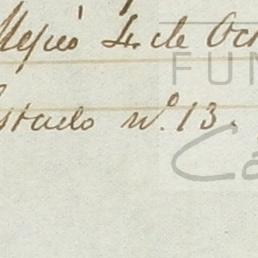 Mejico 4. de Oc
FUN
stado nº. 13.
Ca